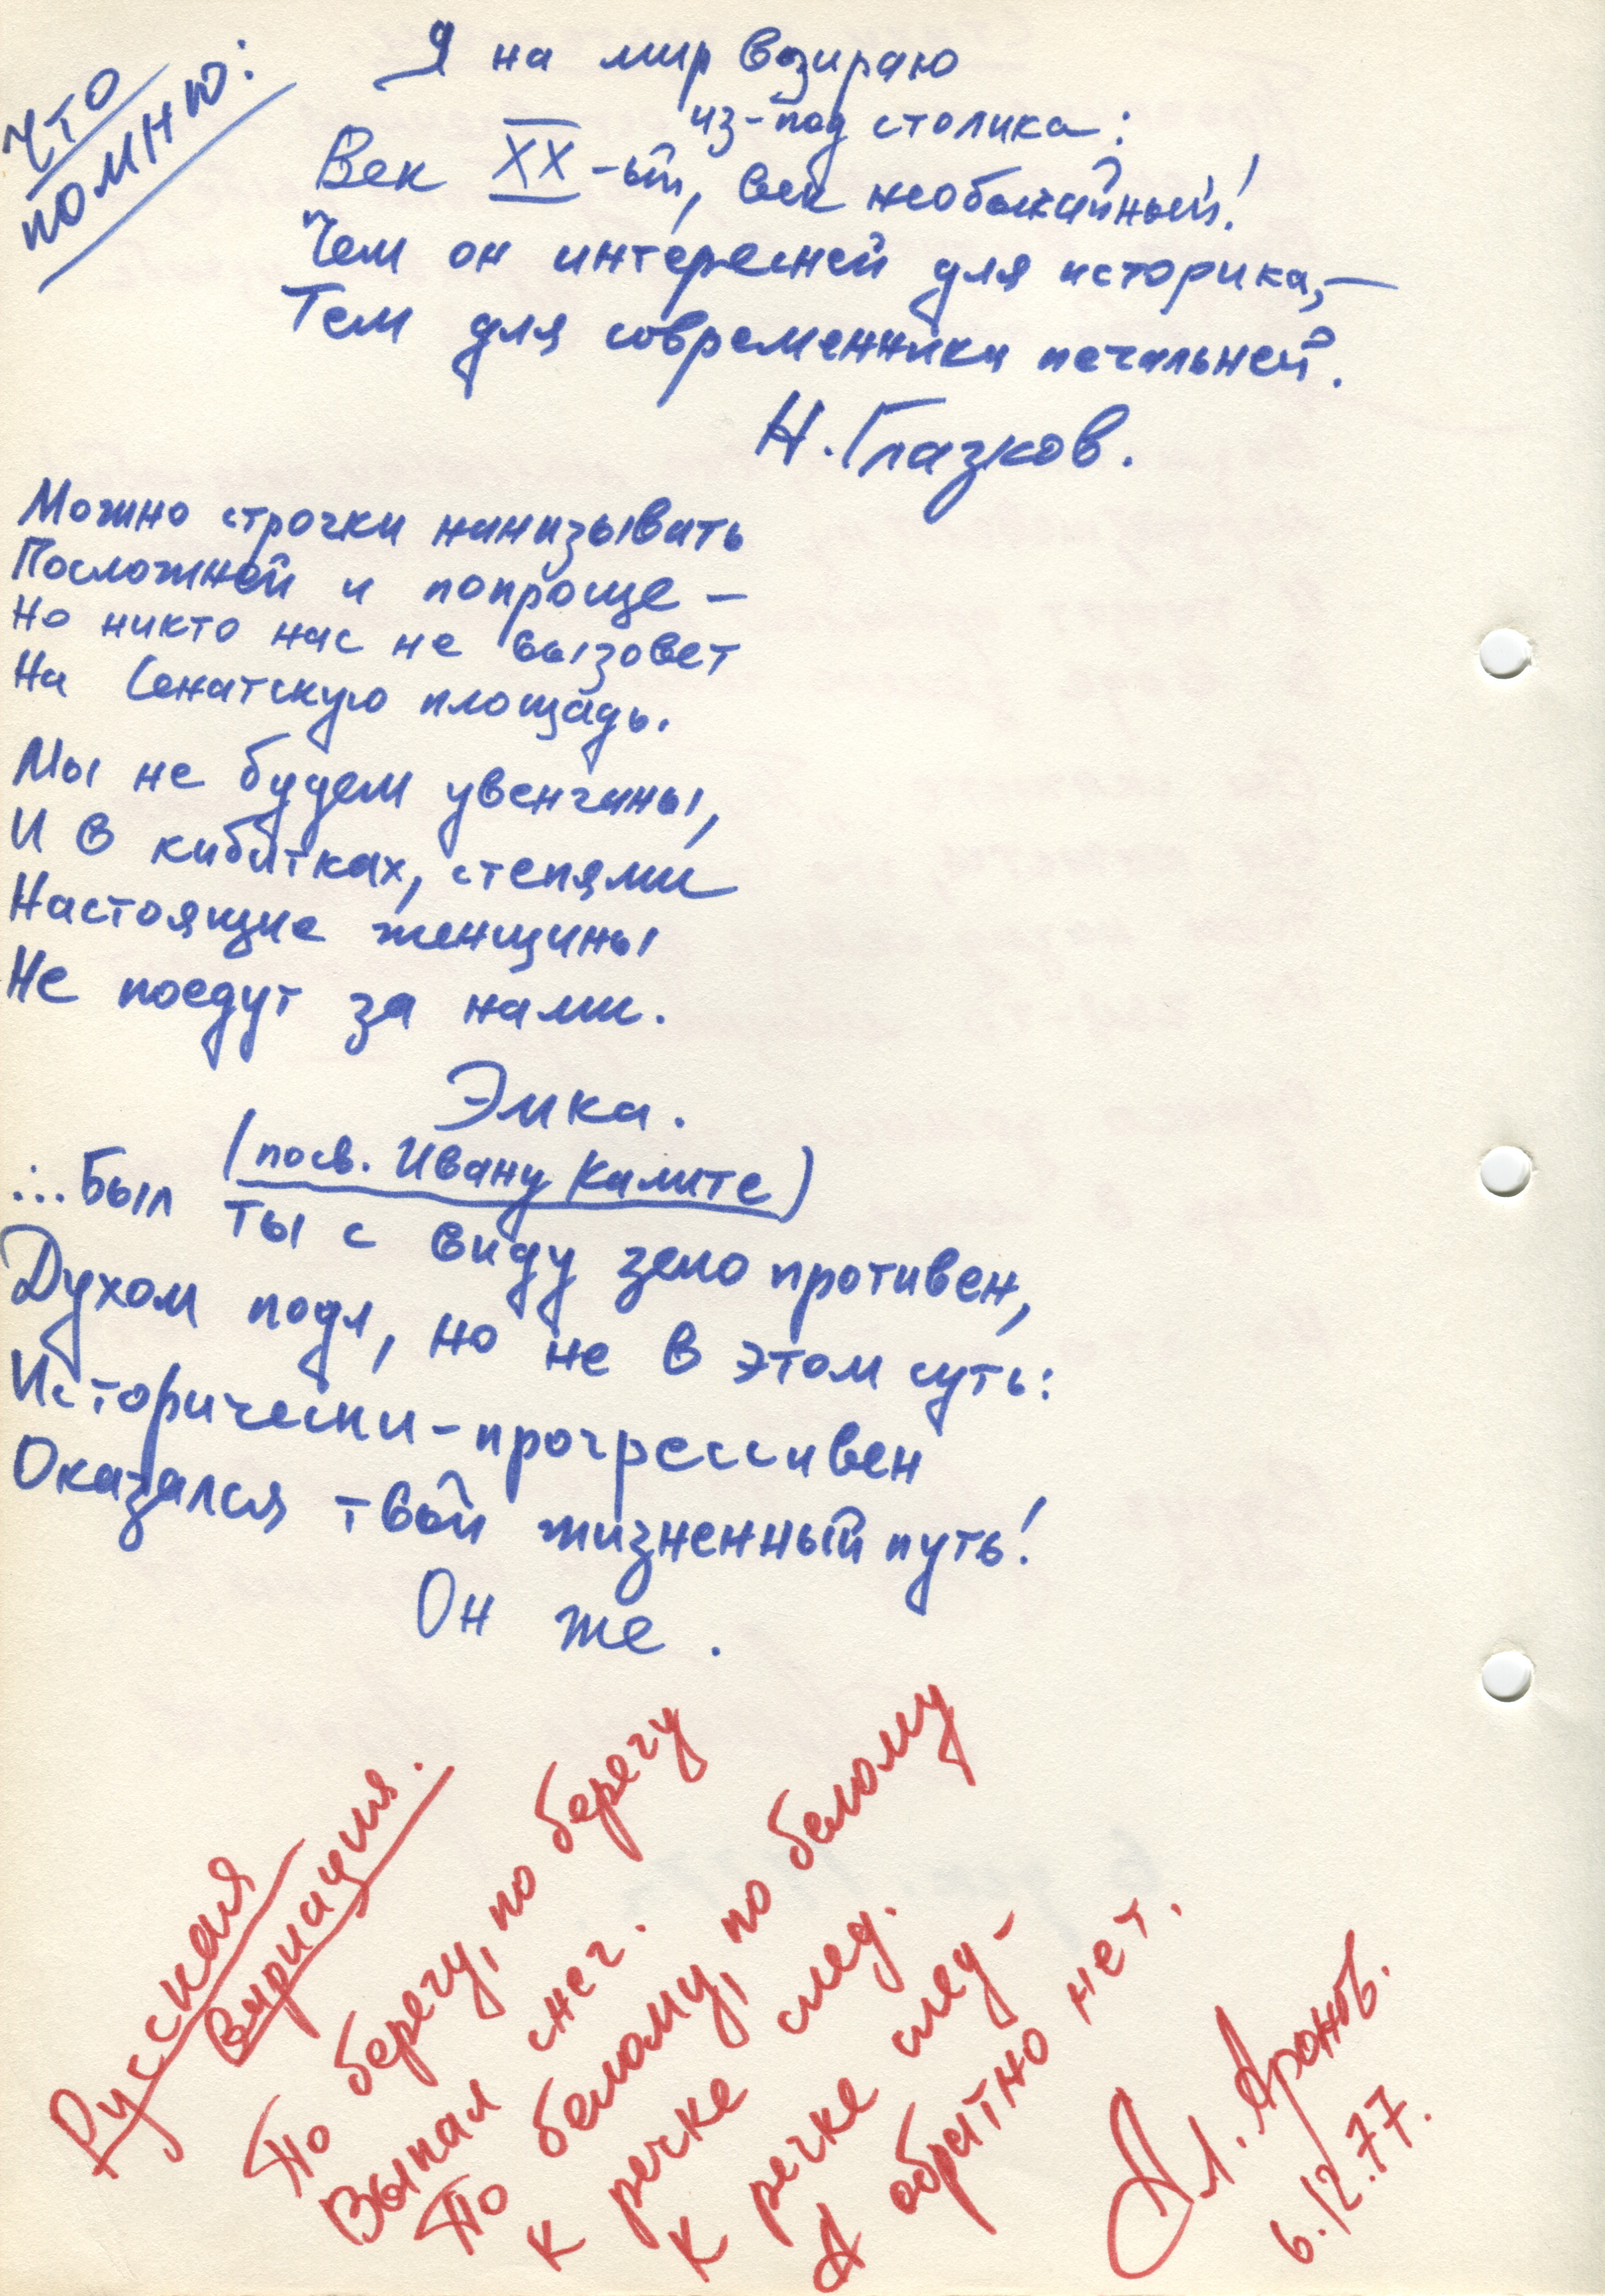 Что
помню:
Я на мир взираю
из-под столика:
Век XX-ый, век необычайный!
Чем он интересней для историка,—
Тем для современника печальней.
Н. Глазков.
Можно строчки нанизывать
Посложней и попроще —
Но никто нас не вызовет
На Сенатскую площадь.
Мы не будем увенчаны,
И в кибитках, степями
Настоящие женщины
Не поедут за нами.
Эмка.
(посв. Ивану Калите)
...Был ты с виду зело противен,
Духом подл, но не в этом суть:
Исторически-прогрессивен
Оказался твой жизненный путь!
Он же.
Русская
вариация.
По берегу, по берегу
Выпал снег.
По белому, по белому
К речке след.
К речке след —
А обратно нет.
Ал. Аронов.
6.12.77.